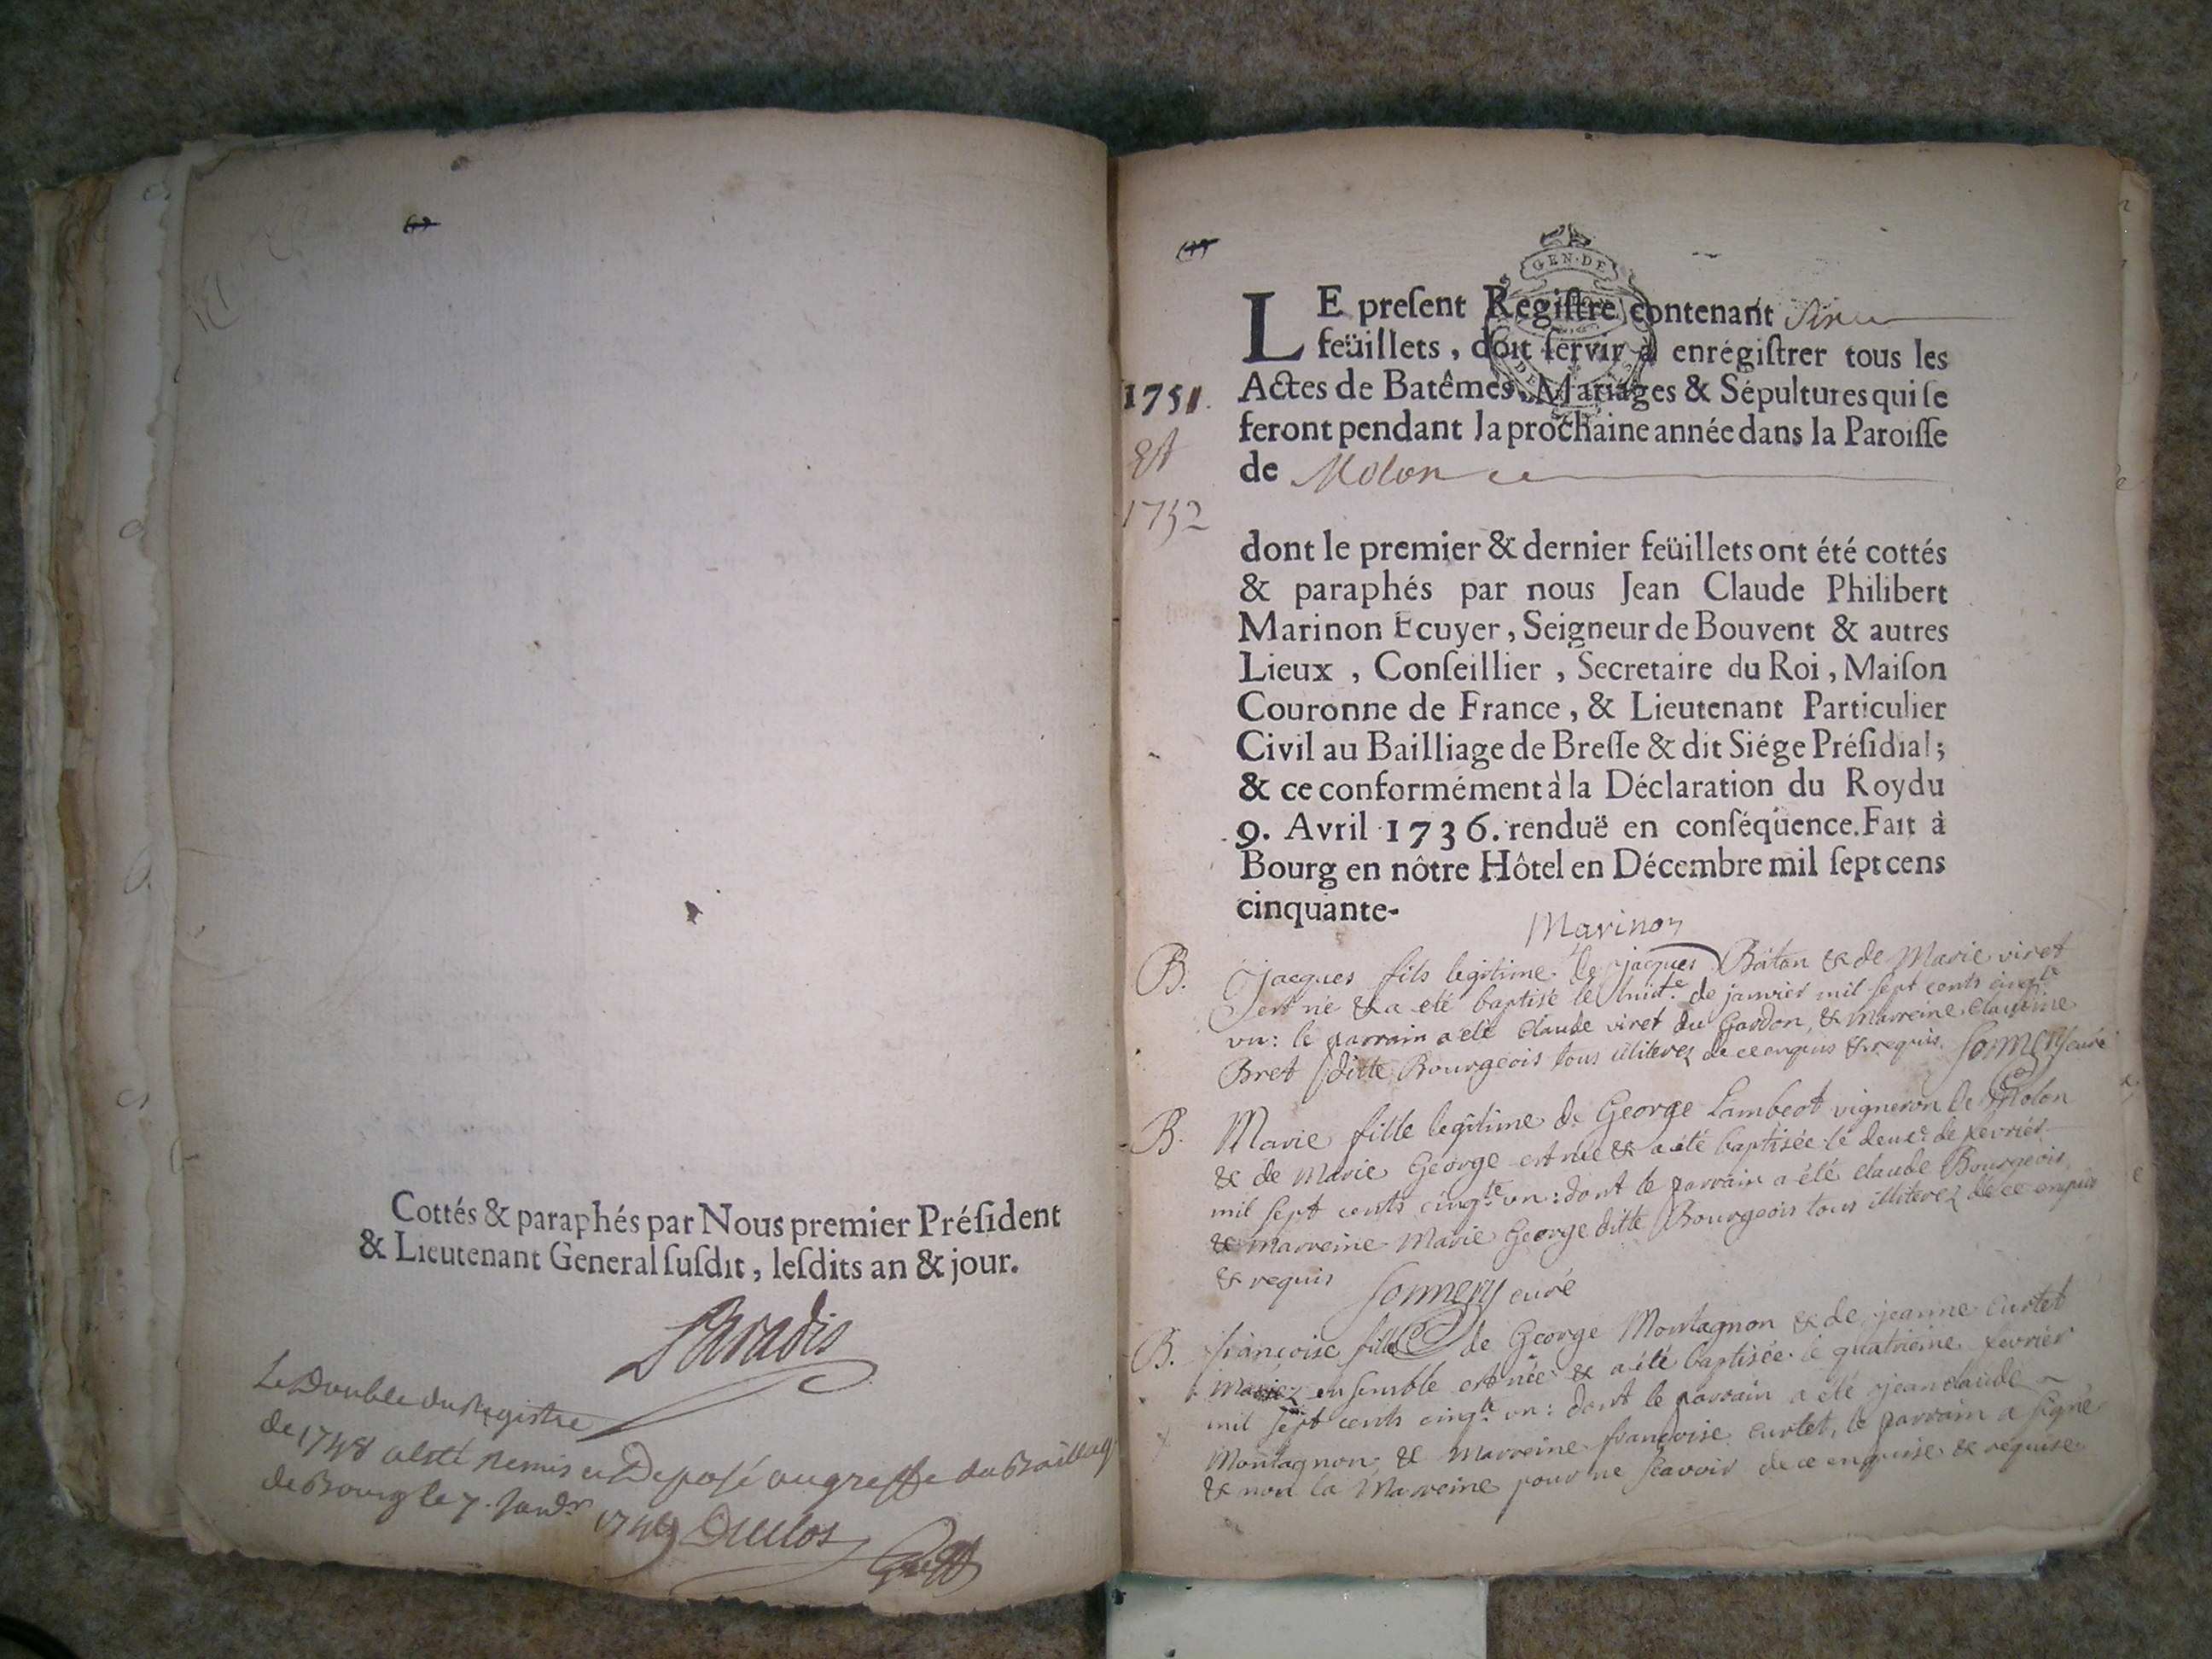 Cottés & paraphés par Nous premier Préſident
& Lieutenant General ſuſdit, leſdits an & jour.
Paradis
Le Double du Registre
de 1748 a esté Remis et Deposé au greffe du Bailliage
de Bourg le 7. Janvr 1749 Duclos
GEN·DE
LE preſent Regiſtre contenant
feüillets, doit ſervir à enrégiſtrer tous les
1751.
Actes de Batêmes, Mariages & Sépultures qui ſe
feront pendant la prochaine année dans la Paroiſſe
Et
de Molon
1752
dont le premier & dernier feüillets ont été cottés
& paraphés par nous Jean Claude Philibert
Marinon Ecuyer, Seigneur de Bouvent & autres
Lieux, Conſeillier, Secretaire du Roi, Maiſon
Couronne de France, & Lieutenant Particulier
Civil au Bailliage de Breſſe & dit Siége Préſidial;
& ce conformément à la Déclaration du Roy du
9. Avril 1736. renduë en conſéquence. Fait à
Bourg en nôtre Hôtel en Décembre mil ſept cens
cinquante-
Marinon
B. jacques fils legitime de jacques Boitan & de Marie viret
est né & a eté baptisé le huit.e de janvier mil sept cents cinq.te
un: le parrain a eté Claude viret du Gardon, & marreine Claudine
Bret ditte Bourgeois tous illiterez de ce enquis & requis. Sormery curé
B. Marie fille legitime de George Lambert vigneron de Molon
& de Marie George est née & a eté baptisée le deux.e de fevrier
mil sept cents cinq.te un: dont le parrain a été claude Bourgeois
& marreine Marie George ditte Bourgeois tous illiterez de ce enquis
& requis Sormery curé
B. françoise fille de George Montagnon & de jeanne Curtet
Mariez ensemble est née & a été baptisée le quatrieme fevrier
mil sept cents cinq.te un: dont le parrain a eté jean claude
Montagnon, & Marreine françoise Curtet, le parrain a signé
& non la Marreine pour ne sçavoir de ce enquise & requise